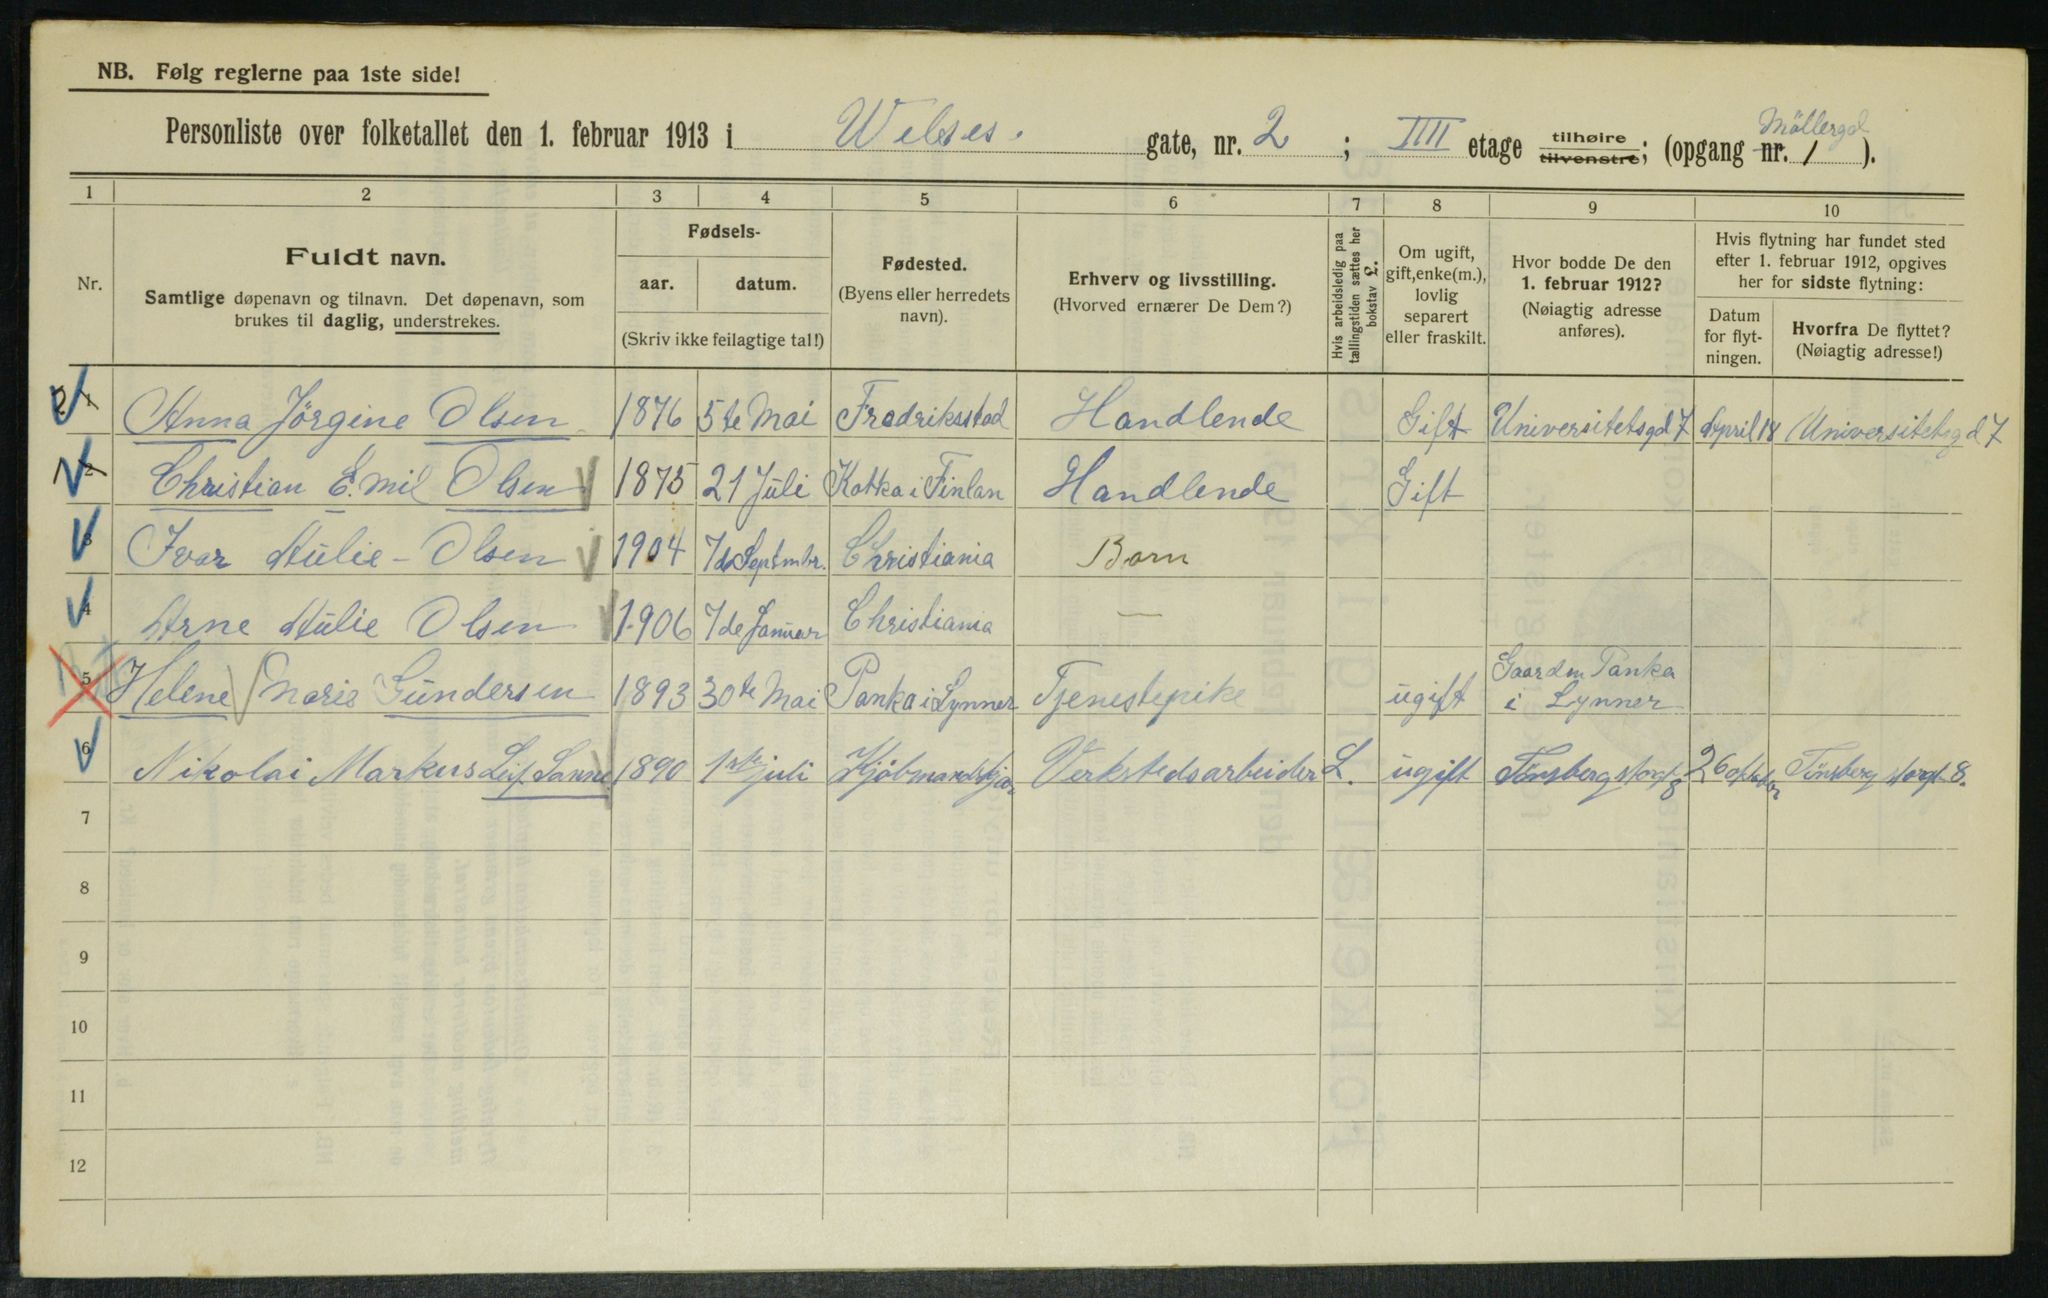 NB. Følg reglerne paa 1ste side!
Personliste over folketallet den 1. februar 1913 i Welses. gate, nr. 2 ; IIII etage tilhøire tilvenstre; (opgang nr. Möllergd 1 ).
1 2 3 4 5 6 7 8 9 10
Nr.
Fuldt navn.
Samtlige døpenavn og tilnavn. Det døpenavn, som
brukes til daglig, understrekes.
Fødsels-
aar. datum.
(Skriv ikke feilagtige tal!)
Fødested.
(Byens eller herredets
navn).
Erhverv og livsstilling.
(Hvorved ernærer De Dem?)
Hvis arbeidsledig paa
tællingstiden sættes her
bokstav L.
Om ugift,
gift, enke(m.),
lovlig
separert
eller fraskilt.
Hvor bodde De den
1. februar 1912?
(Nøiagtig adresse
anføres).
Hvis flytning har fundet sted
efter 1. februar 1912, opgives
her for sidste flytning:
Datum
for flyt-
ningen.
Hvorfra De flyttet?
(Nøiagtig adresse!)
1 Anna Jörgine Olsen 1876 5te Mai Fredriksstad Handlende Gift Universitetsgd 7 April 18 Universitetsgd 7
2 Christian Emil Olsen 1875 21 Juli Kotka i Finlan Handlende Gift
3 Ivar Aulie - Olsen 1904 7de Septmbr. Christiania Barn
4 Arne Aulie Olsen 1906 7de Januar Christiania —
5 Helene Marie Gundersen 1893 30te Mai Panka i Lynner Tjenestepike ugift Gaarden Panka
i Lynner
6 Nikolai Markus Leif Sanne 1890 1ste juli Kjöbmandskjær Verkstedsarbeider L. ugift Tönsberg storgt 8 26 oktober Tönsberg storgt 8.
7
8
9
10
11
12